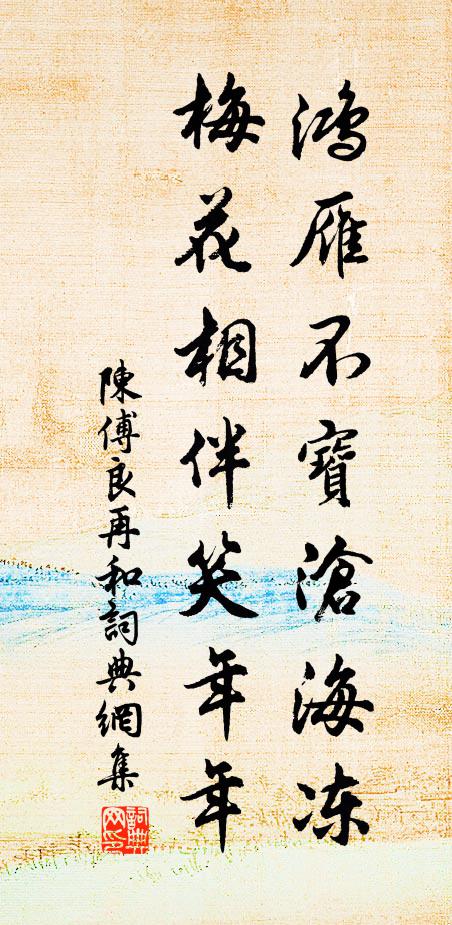 鸿雁不寶滄海冻
梅花相伴笑年年
陳傅良再和詞典網集
詞典网印